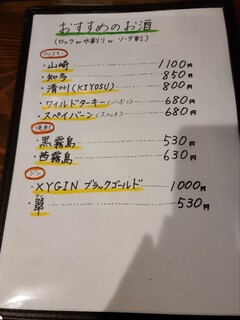 おすすめのお酒
(ロック or 水割り or ソーダ割)
ウイスキー
・山崎 1100円
・知多 850円
・清州(KIYOSU) 800円
・ワイルドターキー(バーボン) 680円
・スペイバーン(スコッチ) 680円
焼酎
・黒霧島 530円
・茜霧島 630円
ジン
・XYGIN ブラックゴールド 1000円
・翠 530円